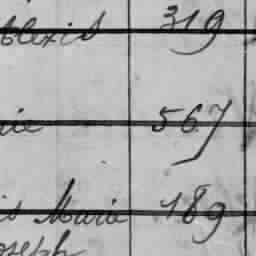 Alexis 319
rie 567
is Marie 189
oseph